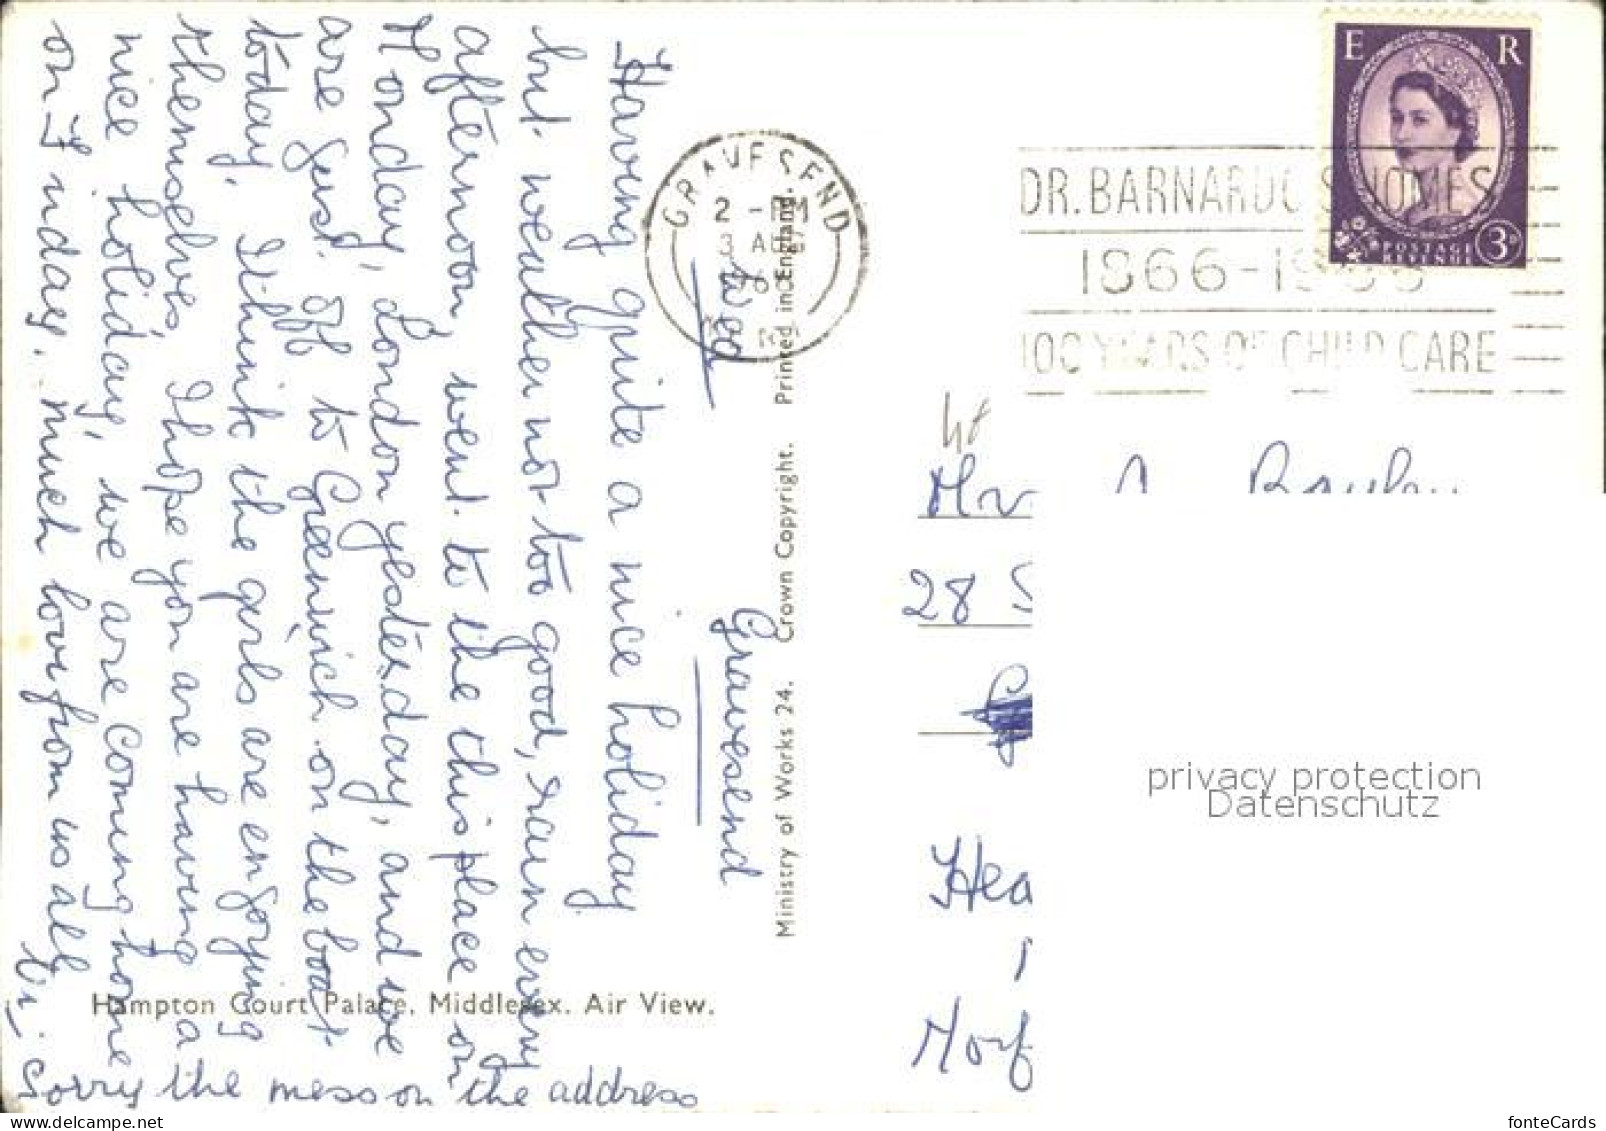 Wed
Gravesend
Having quite a nice holiday
but weather not too good, rain every
afternoon, went to the this place on
Monday, London yesterday, and we
are just off to Greenwich on the boat
today. I think the girls are enjoying
themselves, I hope you are having a
nice holiday, we are coming home
on Friday. Much love from us all
Vi.
Sorry the mess on the address
Hampton Court Palace, Middlesex. Air View.
Ministry of Works 24. Crown Copyright. Printed in England.
GRAVESEND
2 - PM
3 AUG
KENT
E R
POSTAGE
REVENUE
3D
DR. BARNARDO'S HOMES
1866-1966
100 YEARS OF CHILD CARE
Mr
28 S
Hea
privacy protection
Datenschutz
fonteCards